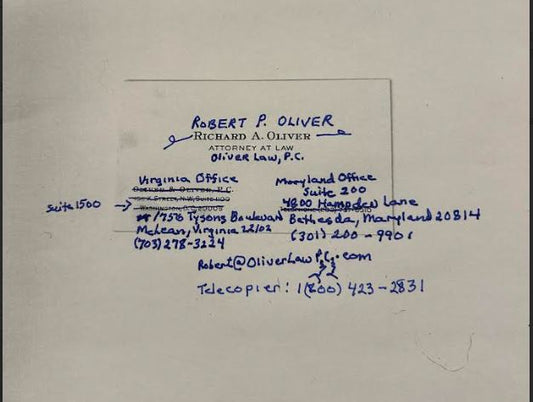 ROBERT P. OLIVER
RICHARD A. OLIVER
ATTORNEY AT LAW
Oliver Law, P.C.
Virginia Office
OLIVER & OLIVER, P.C.
K STREET, N.W., SUITE 1100
WASHINGTON, D.C.
Suite 1500
1750 Tysons Boulevard
McLean, Virginia 22102
(703) 278-3224
Maryland Office
Suite 200
4800 Hampden Lane
Bethesda, Maryland 20814
(301) 200-990
Robert@OliverLawP.C.com
Telecopier: 1(800) 423-2831